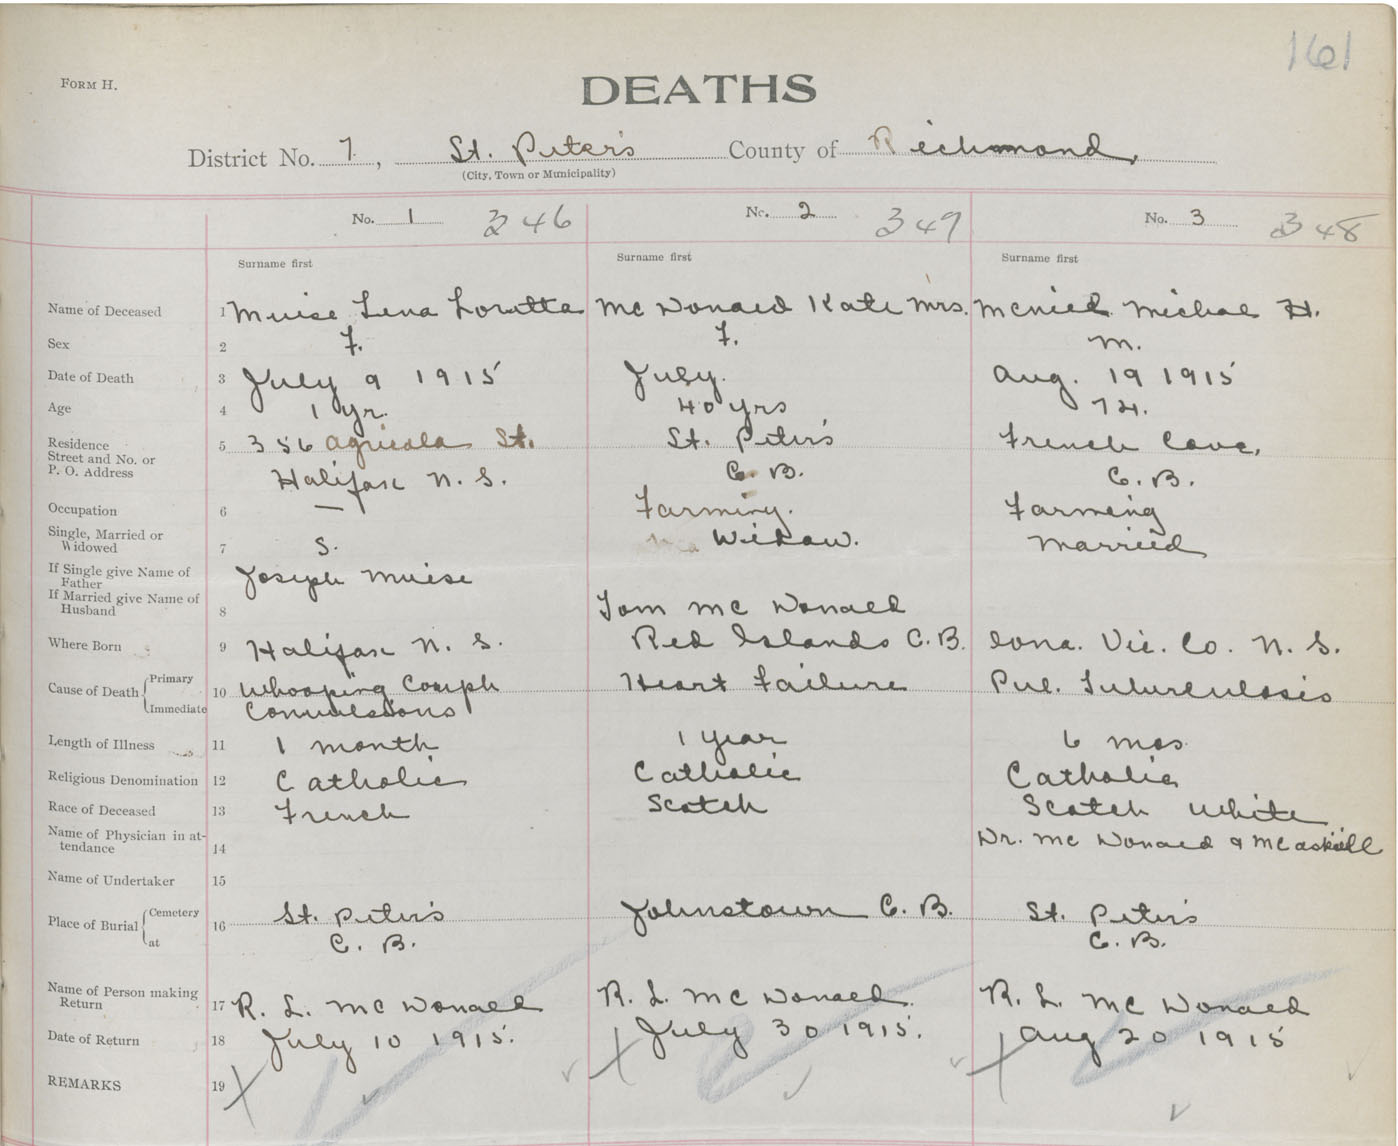 161
FORM H.
DEATHS
District No. 7, St. Peter's County of Richmond,
(City, Town or Municipality)
No. 1 346 No. 2 349 No. 3 348
Surname first Surname first Surname first
Name of Deceased 1 Muise Lena Loretta Mc Donald Kate Mrs. McNiel Michael H.
Sex 2 F. F. M.
Date of Death 3 July 9 1915 July. Aug. 19 1915
Age 4 1 yr. 40 yrs 74.
Residence 5 356 Agricola St. St. Peter's French Cove,
Street and No. or
P. O. Address Halifax N. S. C. B. C. B.
Occupation 6 — Farming. Farming
Single, Married or
Widowed 7 S. Widow. Married
If Single give Name of
Father Joseph Muise
If Married give Name of
Husband 8 Tom Mc Donald
Where Born 9 Halifax N. S. Red Islands C. B. Iona. Vic. Co. N. S.
Cause of Death Primary 10 Whooping Cough Heart Failure Pul. Tuberculosis
Immediate Convulsions
Length of Illness 11 1 month 1 year 6 mos
Religious Denomination 12 Catholic Catholic Catholic
Race of Deceased 13 French Scotch Scotch White
Name of Physician in at-
tendance 14 Dr. Mc Donald & McAskill
Name of Undertaker 15
Place of Burial Cemetery 16 St. Peter's Johnstown C. B. St. Peter's
at C. B. C. B.
Name of Person making
Return 17 R. L. Mc Donald R. L. Mc Donald. R. L. Mc Donald
Date of Return 18 July 10 1915. July 30 1915. Aug 20 1915
REMARKS 19